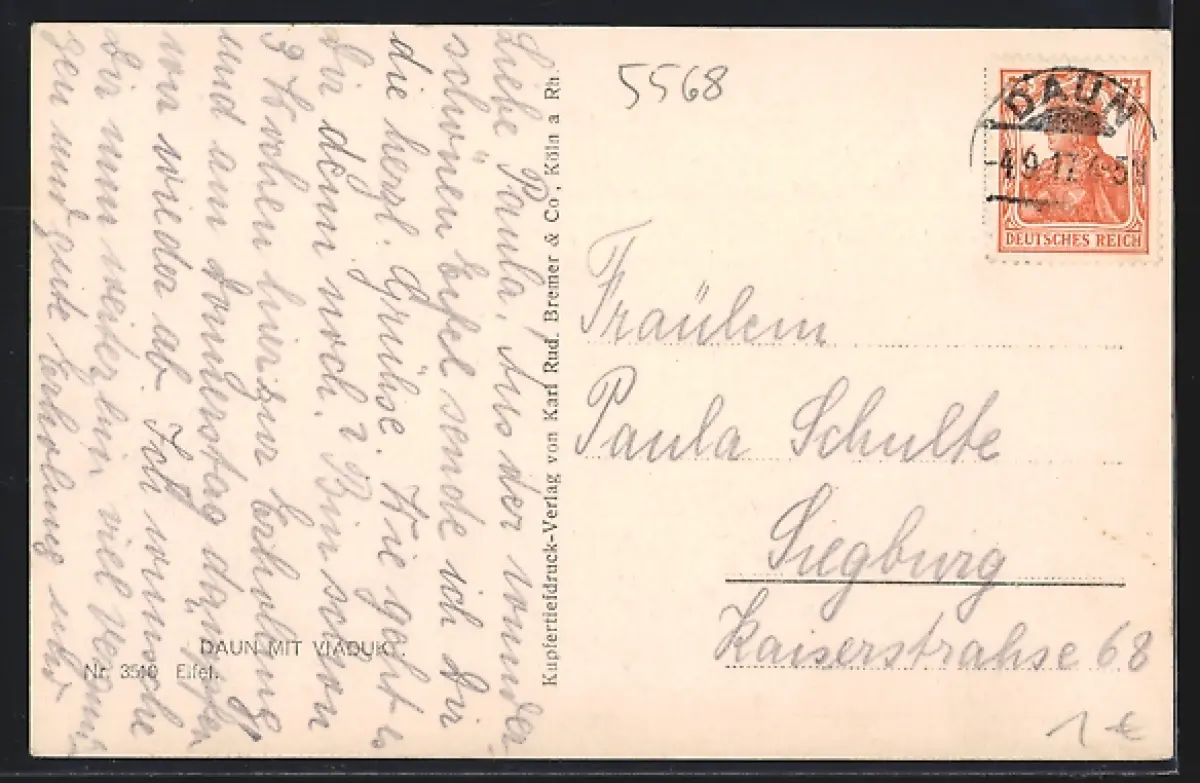 Liebe Paula, Aus der wunder
schönen Eifel sende ich Dir
die herzl. Grüße. Wie geht es
Dir denn noch? Bin schon
3 Wochen hier zur Erholung
und am Donnerstag
von wieder ab. Ich wünsche
Dir nun weiterhin viel Vergnü
gen und gute Erholung
Kupfertiefdruck-Verlag von Karl Rud. Bremer & Co., Köln a Rh.
DAUN MIT VIADUKT.
Nr. 3510 Eifel.
5568
DAUN
-4.9.17. 4-5N
7½
DEUTSCHES REICH
Fräulein
Paula Schulte
Siegburg
Kaiserstrahse 68
1 €